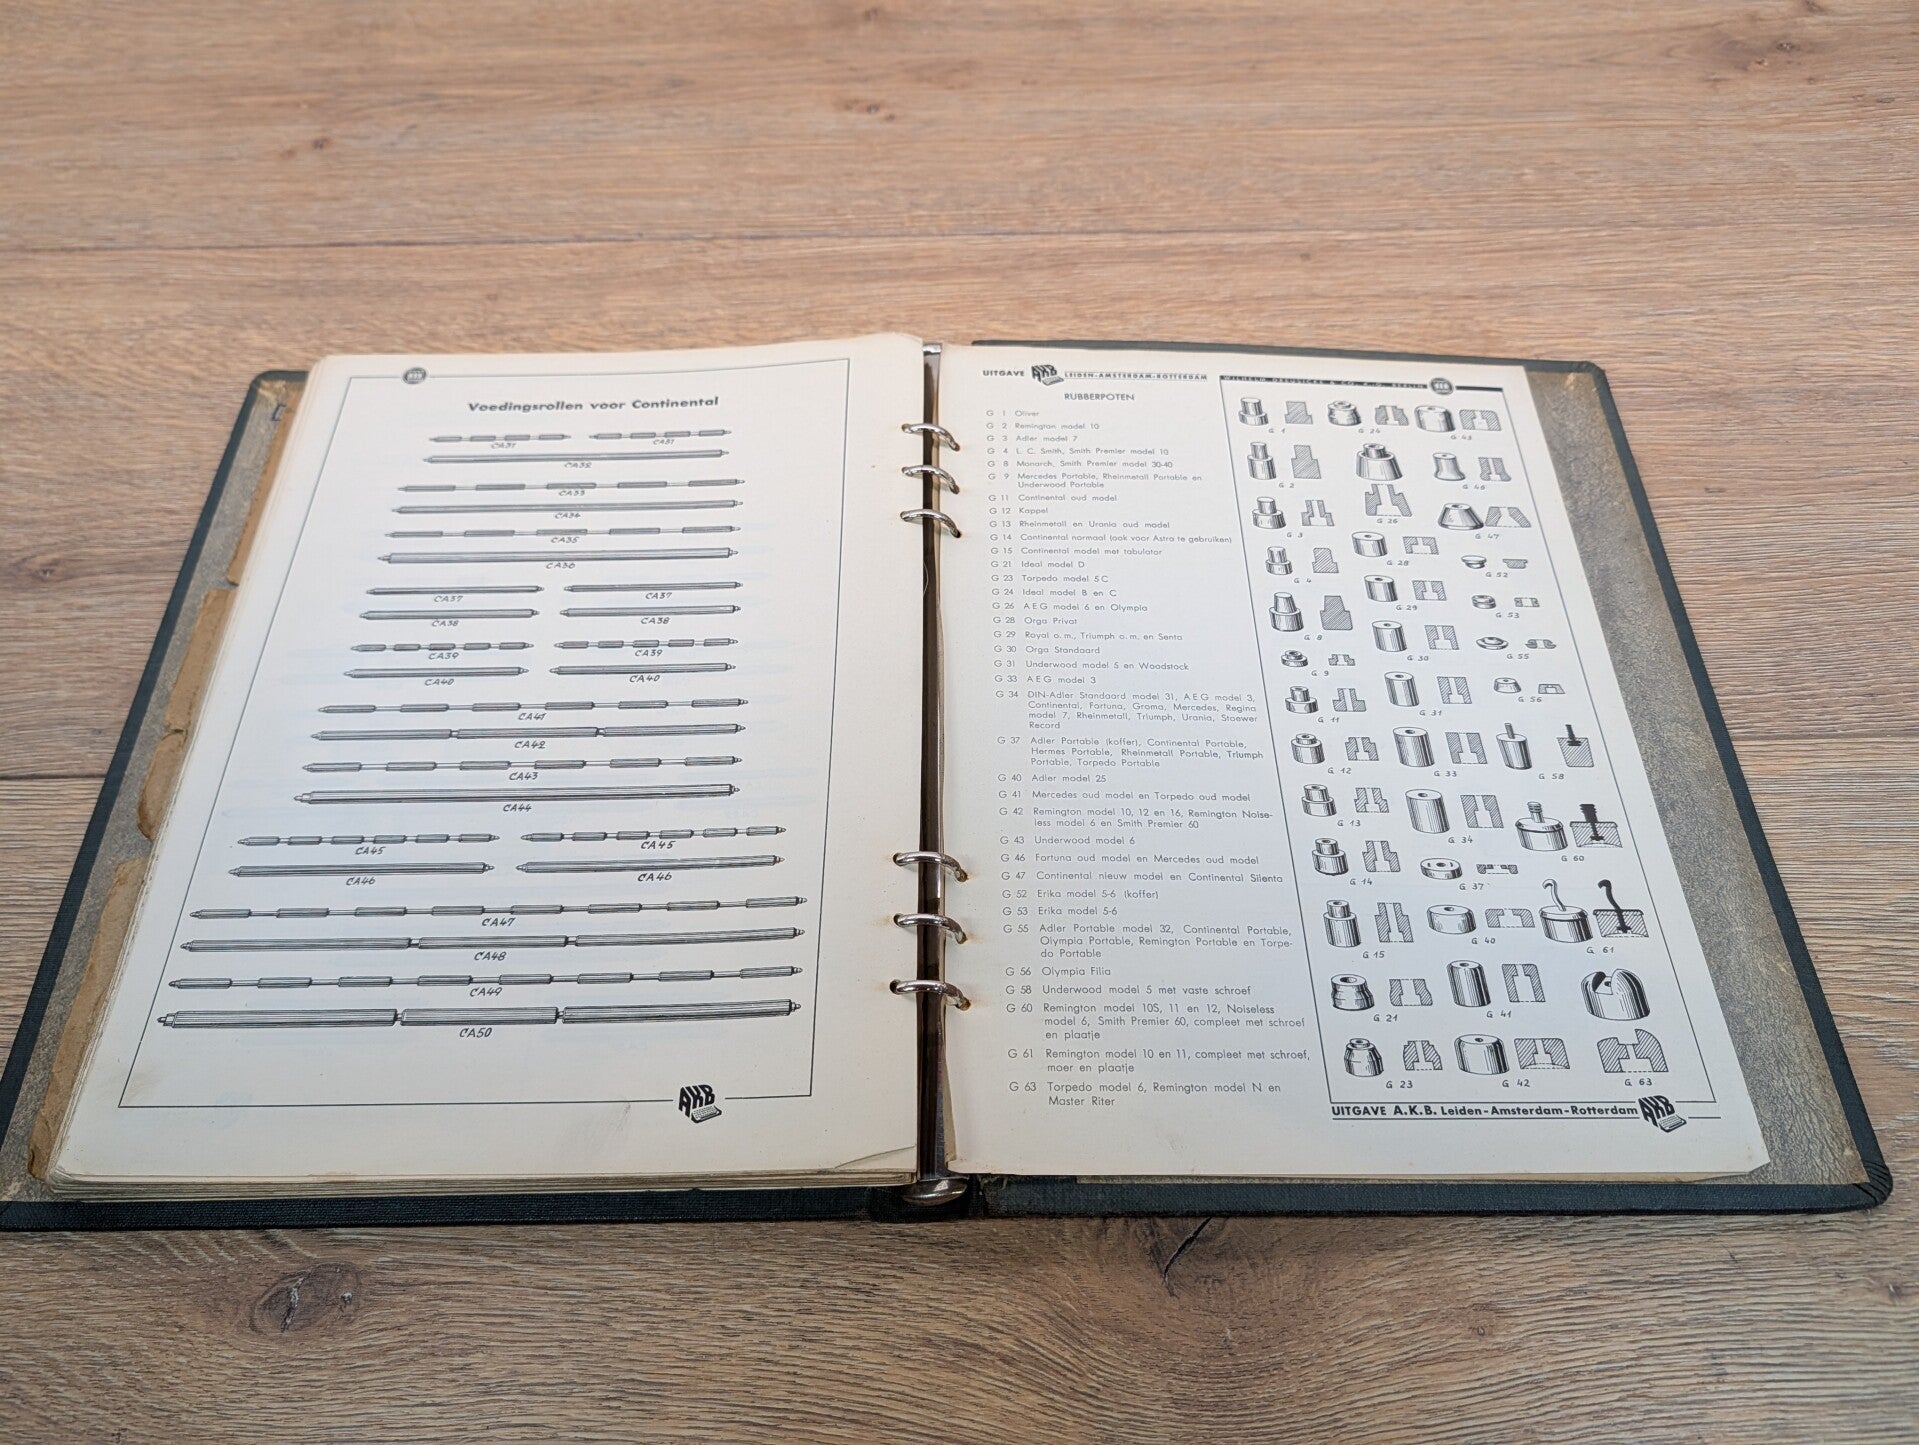 Voedingsrollen voor Continental
CA31 CA31
CA32
CA33
CA34
CA35
CA36
CA37 CA37
CA38 CA38
CA39 CA39
CA40 CA40
CA41
CA42
CA43
CA44
CA45 CA45
CA46 CA46
CA47
CA48
CA49
CA50
AKB
UITGAVE AKB LEIDEN-AMSTERDAM-ROTTERDAM
RUBBERPOTEN
G 1 Oliver
G 2 Remington model 10
G 3 Adler model 7
G 4 L. C. Smith, Smith Premier model 10
G 8 Monarch, Smith Premier model 30-40
G 9 Mercedes Portable, Rheinmetall Portable en
Underwood Portable
G 11 Continental oud model
G 12 Kappel
G 13 Rheinmetall en Urania oud model
G 14 Continental normaal (ook voor Astra te gebruiken)
G 15 Continental model met tabulator
G 21 Ideal model D
G 23 Torpedo model 5 C
G 24 Ideal model B en C
G 26 AEG model 6 en Olympia
G 28 Orga Privat
G 29 Royal o. m., Triumph o. m. en Senta
G 30 Orga Standaard
G 31 Underwood model 5 en Woodstock
G 33 AEG model 3
G 34 DIN-Adler Standaard model 31, AEG model 3,
Continental, Fortuna, Groma, Mercedes, Regina
model 7, Rheinmetall, Triumph, Urania, Stoewer
Record
G 37 Adler Portable (koffer), Continental Portable,
Hermes Portable, Rheinmetall Portable, Triumph
Portable, Torpedo Portable
G 40 Adler model 25
G 41 Mercedes oud model en Torpedo oud model
G 42 Remington model 10, 12 en 16, Remington Noise-
less model 6 en Smith Premier 60
G 43 Underwood model 6
G 46 Fortuna oud model en Mercedes oud model
G 47 Continental nieuw model en Continental Silenta
G 52 Erika model 5-6 (koffer)
G 53 Erika model 5-6
G 55 Adler Portable model 32, Continental Portable,
Olympia Portable, Remington Portable en Torpe-
do Portable
G 56 Olympia Filia
G 58 Underwood model 5 met vaste schroef
G 60 Remington model 10S, 11 en 12, Noiseless
model 6, Smith Premier 60, compleet met schroef
en plaatje
G 61 Remington model 10 en 11, compleet met schroef,
moer en plaatje
G 63 Torpedo model 6, Remington model N en
Master Riter
WILHELM DREUSICKE & CO. K.G. BERLIN
G 1 G 24 G 43
G 2 G 46
G 26
G 3 G 47
G 28
G 4 G 52
G 29 G 53
G 8
G 30 G 55
G 9
G 31 G 56
G 11
G 12 G 33 G 58
G 13
G 34 G 60
G 14 G 37
G 15 G 40 G 61
G 21 G 41
G 23 G 42 G 63
UITGAVE A.K.B. Leiden-Amsterdam-Rotterdam AKB